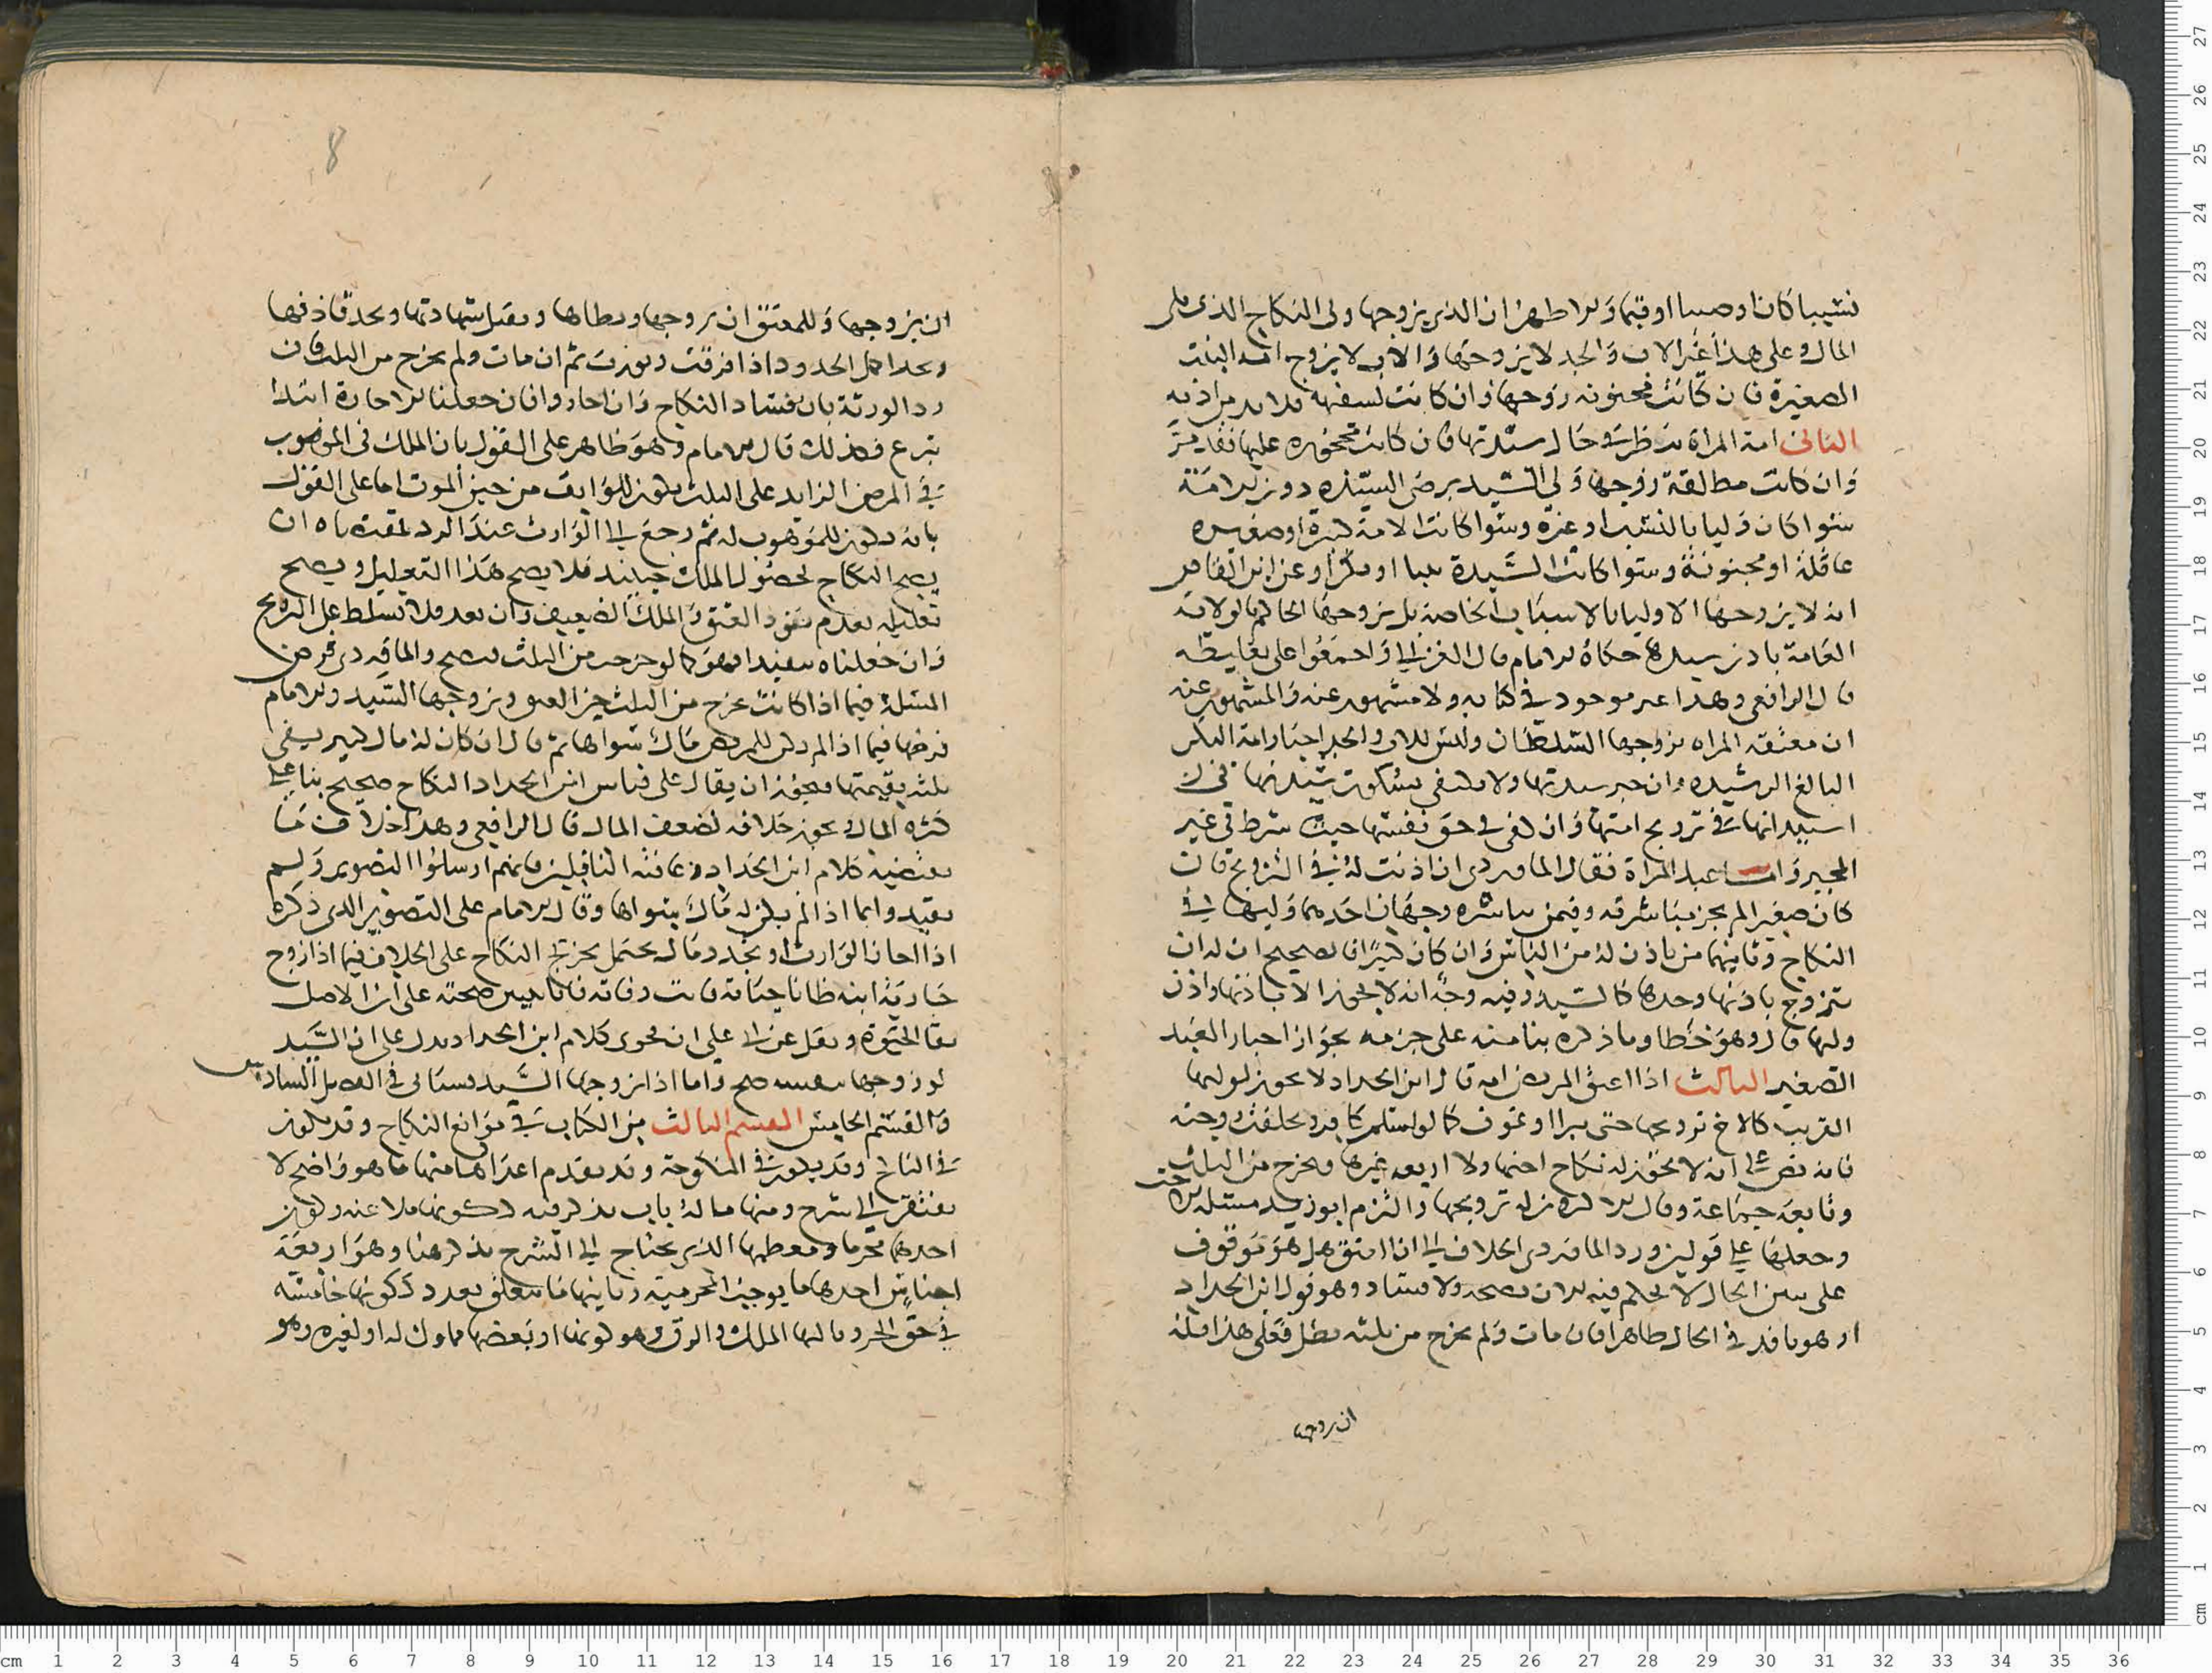 نسيبا كان او وصيا او قيما والاظهر ان الذي يزوجها ولي النكاح الذي يلي
المال وعلى هذا غير الاب والجد لا يزوجها والاب لا يزوج امة البنت
الصغيرة فان كانت مجنونة زوجها وان كانت لسفيهة فلا بد من اذنه
الثاني امة المراة ينظر في حال سيدتها فان كانت محجورة عليها فقد مر
وان كانت مطلقة زوجها ولي السيدة برضى السيدة دون الامة
سوا كان وليا بالنسب او غيره وسوا كانت الامة كبيرة او صغيرة
عاقلة او مجنونة وسوا كانت السيدة ثيبا او بكرا وعن ابن القاص
انه لا يزوجها الاوليا بالاسباب الخاصة بل يزوجها الحاكم بالولاية
العامة باذن سيدها حكاه الامام قال الغزالي واجمعوا على تغليطه
قال الرافعي وهذا غير موجود في كتابه ولا مشهور عنه والمشهور عنه
ان معتقة المراه يزوجها السلطان وليس للاب والجد اجبار امة البكر
البالغ الرشيده وان جبر سيدتها ولا يكتفى بسكوت سيدتها في
استيذانها في تزويج امتها وان كفى في حق نفسها حيث شرط في غير
المجبر واما عبد المراة فقال الماوردي ان اذنت له في التزويج فان
كان صغيرا لم يجز مباشرته وفيمن يباشره وجهان احدهما وليها في
النكاح وثانيهما من ياذن له من الناس وان كان كبيرا فالصحيح ان له ان
يتزوج باذنها وحدها كالسيد وفيه وجه انه لا يجوز الا باذنها واذن
وليها قال وهو خطا وما ذكره بنا منه على جزمه بجواز اجبار العبد
الصغير الثالث اذا اعتق المريض امة قال ابن الحداد لا يجوز لوليها
القريب كالاخ تزويجها حتى يبرا او يموت كما لو اسلم كافر وتخلفت زوجته
فانه نص على انه لا يجوز له نكاح اختها ولا اربع غيرها ويخرج من الثلث
وتابعه جماعة وقال الاكثرون له تزويجها والتزم ابو زيد مسئلة الاخت
وجعلها على قولين ورد الماوردي الخلاف الى ان العتق هل هو موقوف
على تبين الحال لا يحكم فيه الان بصحة ولا فساد وهو قول ابن الحداد
او هو نافذ في الحال ظاهرا فان مات ولم يخرج من ثلثه بطل فعلى هذا فله
ان يزوجها
8
ان يزوجها وللمعتق ان يزوجها ويطاها وتقبل شهادتها ويحد قاذفها
وتحد اكمل الحدود اذا قذفت وتورث ثم ان مات ولم يخرج من الثلث فان
رد الورثة بان فساد النكاح وان اجازوا فان جعلنا الاجازة ابتدا
تبرع فكذلك قال الامام وهو ظاهر على القول بان الملك في الموهوب
في المرض الزايد على الثلث يكون للوارث من حين الموت اما على القول
بانه يكون للموهوب له ثم رجع الى الوارث عند الرد فمقتضاه ان
يصح النكاح لحصول الملك حينئذ فلا يصح هذا التعليل ويصح
تعليله بعدم نفوذ العتق والملك الضعيف وان نفذ فلا يسلط على التزويج
وان جعلناه تنفيذا فهو كما لو خرجت من الثلث فيصح والماوردي فرض
المسئلة فيما اذا كانت تخرج من الثلث حين العتق ويزوجها السيد والامام
فرضها فيما اذا لم يكن للمريض مال سواها ثم قال ان كان له مال كثير يفي
ثلثه بقيمتها فيجوز ان يقال على قياس ابن الحداد النكاح صحيح بنا على
كثرة المال ويجوز خلافه لضعف المال قال الرافعي وهذا خلاف ما
يقتضيه كلام ابن الحداد وعامة الناقلين فانهم ارسلوا التصوير ولم
يقيدوا بما اذا لم يكن له مال سواها وقال الامام على التصوير الذي ذكره
اذا اجاز الوارث او تجدد مال يحتمل تخريج النكاح على الخلاف فيما اذا زوج
جارية ابنه ظانا حياته فبانت وفاته فانا نتبين صحته على ان الاصل
بقا الحيوة ونقل عن الشيخ ابي علي ان فحوى كلام ابن الحداد يدل على ان السيد
لو زوجها بنفسه صح واما اذا زوجها السيد فسياتي في الفصل السادس
والقسم الخامس القسم الثالث من الكتاب في موانع النكاح وقد يكون
في الناكح وقد يكون في المنكوحة وقد تقدم اعدادها منها ما هو واضح لا
يفتقر الى شرح ومنها ما له باب يذكر فيه ككونها ملاعنة وكون
احدهما محرما ومعظمها الذي يحتاج الى الشرح يذكر هنا وهو اربعة
اجناس احدها ما يوجب المحرمية وثانيها ما يتعلق بعدد ككونها خامسة
في حق الحر وثالثها الملك والرق وهو كونها او بعضها مملوك له او لغيره وهو